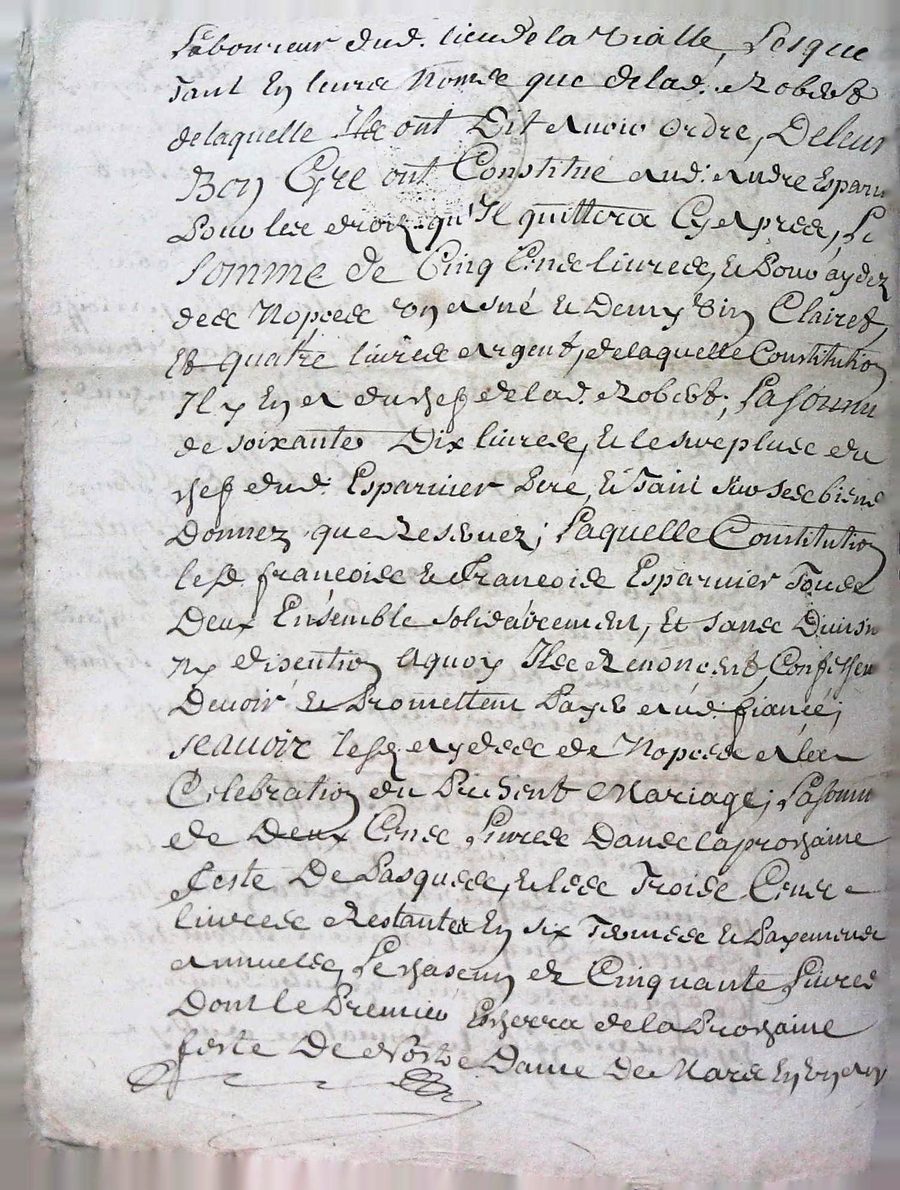 Laboureur dud. lieu de la Vialle, Lesque
Tant En leurs Noms que de lad. Robert
de laquelle Ils ont Dit avoir ordre, De leur
Bon Gré ont Constitué aud. andre Esparv
Pour les droiz qu'Il quittera Cy apres, La
somme de Cinq Cens livres, et Pour aydez
des Nopces un asné et Demy Vin Clairet,
Et quatre livres argent, de laquelle Constitution
Il y En a du chef de lad. Robert, La somm
de soixante Dix livres, et le surplus du
chef dud. Esparvier Pere, et Tant sur ses biens
Donnez que Reservez; Laquelle Constitution
lesd francois et Francois Esparvier Tous
Deux Ensemble solidairement, Et sans Division
ny discution aquoy Ils Renoncent, Confessen
Devoir et Promettent Payer aud. fiancé;
scavoir lesd aydes de Nopces a la
Celebration du Present Mariage; La somm
de Deux Cens Livres Dans la prochaine
feste De Pasques, et les Trois Cens
livres Restantes En six Termes et Payemens
annuels, Le chascun de Cinquante Livres
Dont le Premier Escherra de la Prochaine
feste De Nostre Dame De Mars En un an